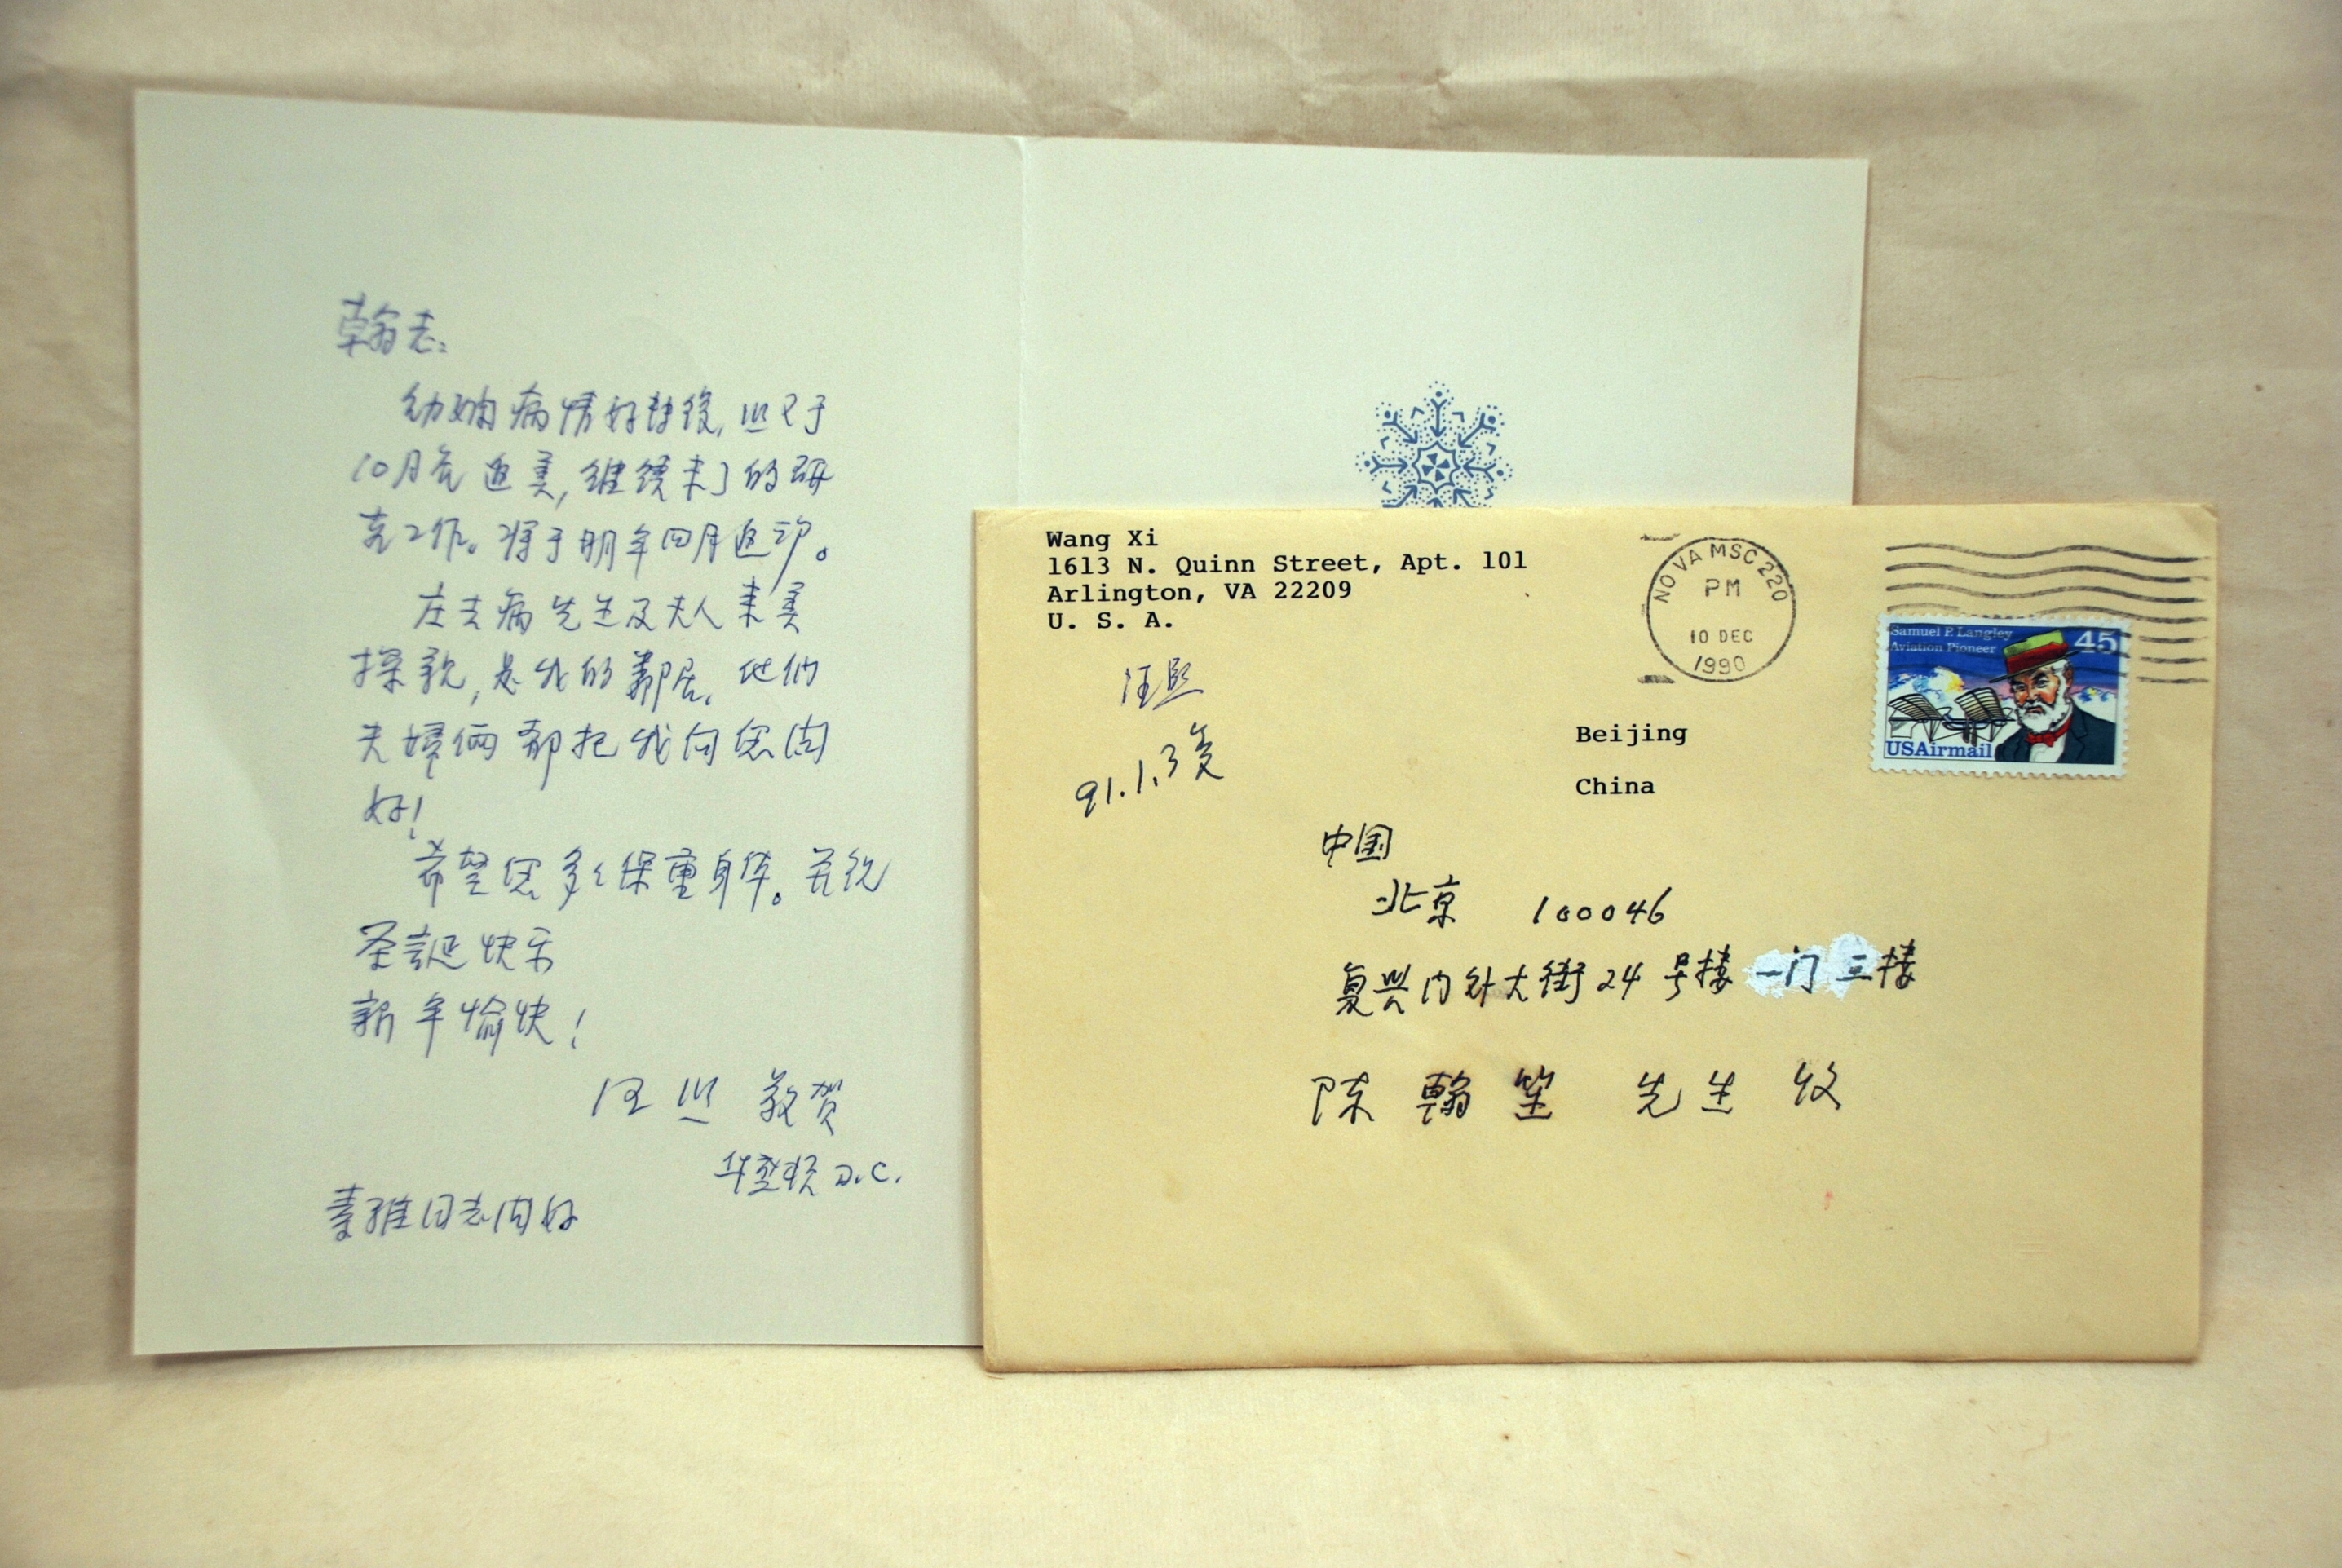 翰老:
幼娴病情好转后,熙已于
10月底返美,继续未了的研
究工作。将于明年四月返沪。
庄去病先生及夫人来美
探亲,是我的鄰居。他们
夫婦俩都托我向您问
好!
希望您多々保重身体。并祝
圣誕快乐
新年愉快!
汪熙 敬贺
华盛顿D.C.
素雅同志问好
Wang Xi
1613 N. Quinn Street, Apt. 101
Arlington, VA 22209
U. S. A.
汪熙
91.1.3复
NO VA MSC 220
PM
10 DEC
1990
Samuel P. Langley
Aviation Pioneer
45
USAirmail
Beijing
China
中国
北京 100046
复兴门外大街24号楼一门三楼
陈翰笙 先生 收